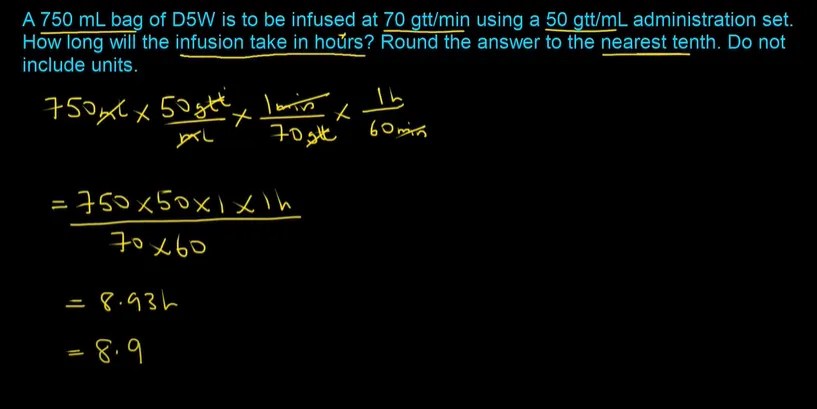 A 750 mL bag of D5W is to be infused at 70 gtt/min using a 50 gtt/mL administration set.
How long will the infusion take in hours? Round the answer to the nearest tenth. Do not
include units.
750mL × 50gtt/mL × 1min/70gtt × 1h/60min
= 750×50×1×1h
70×60
= 8.93h
= 8.9